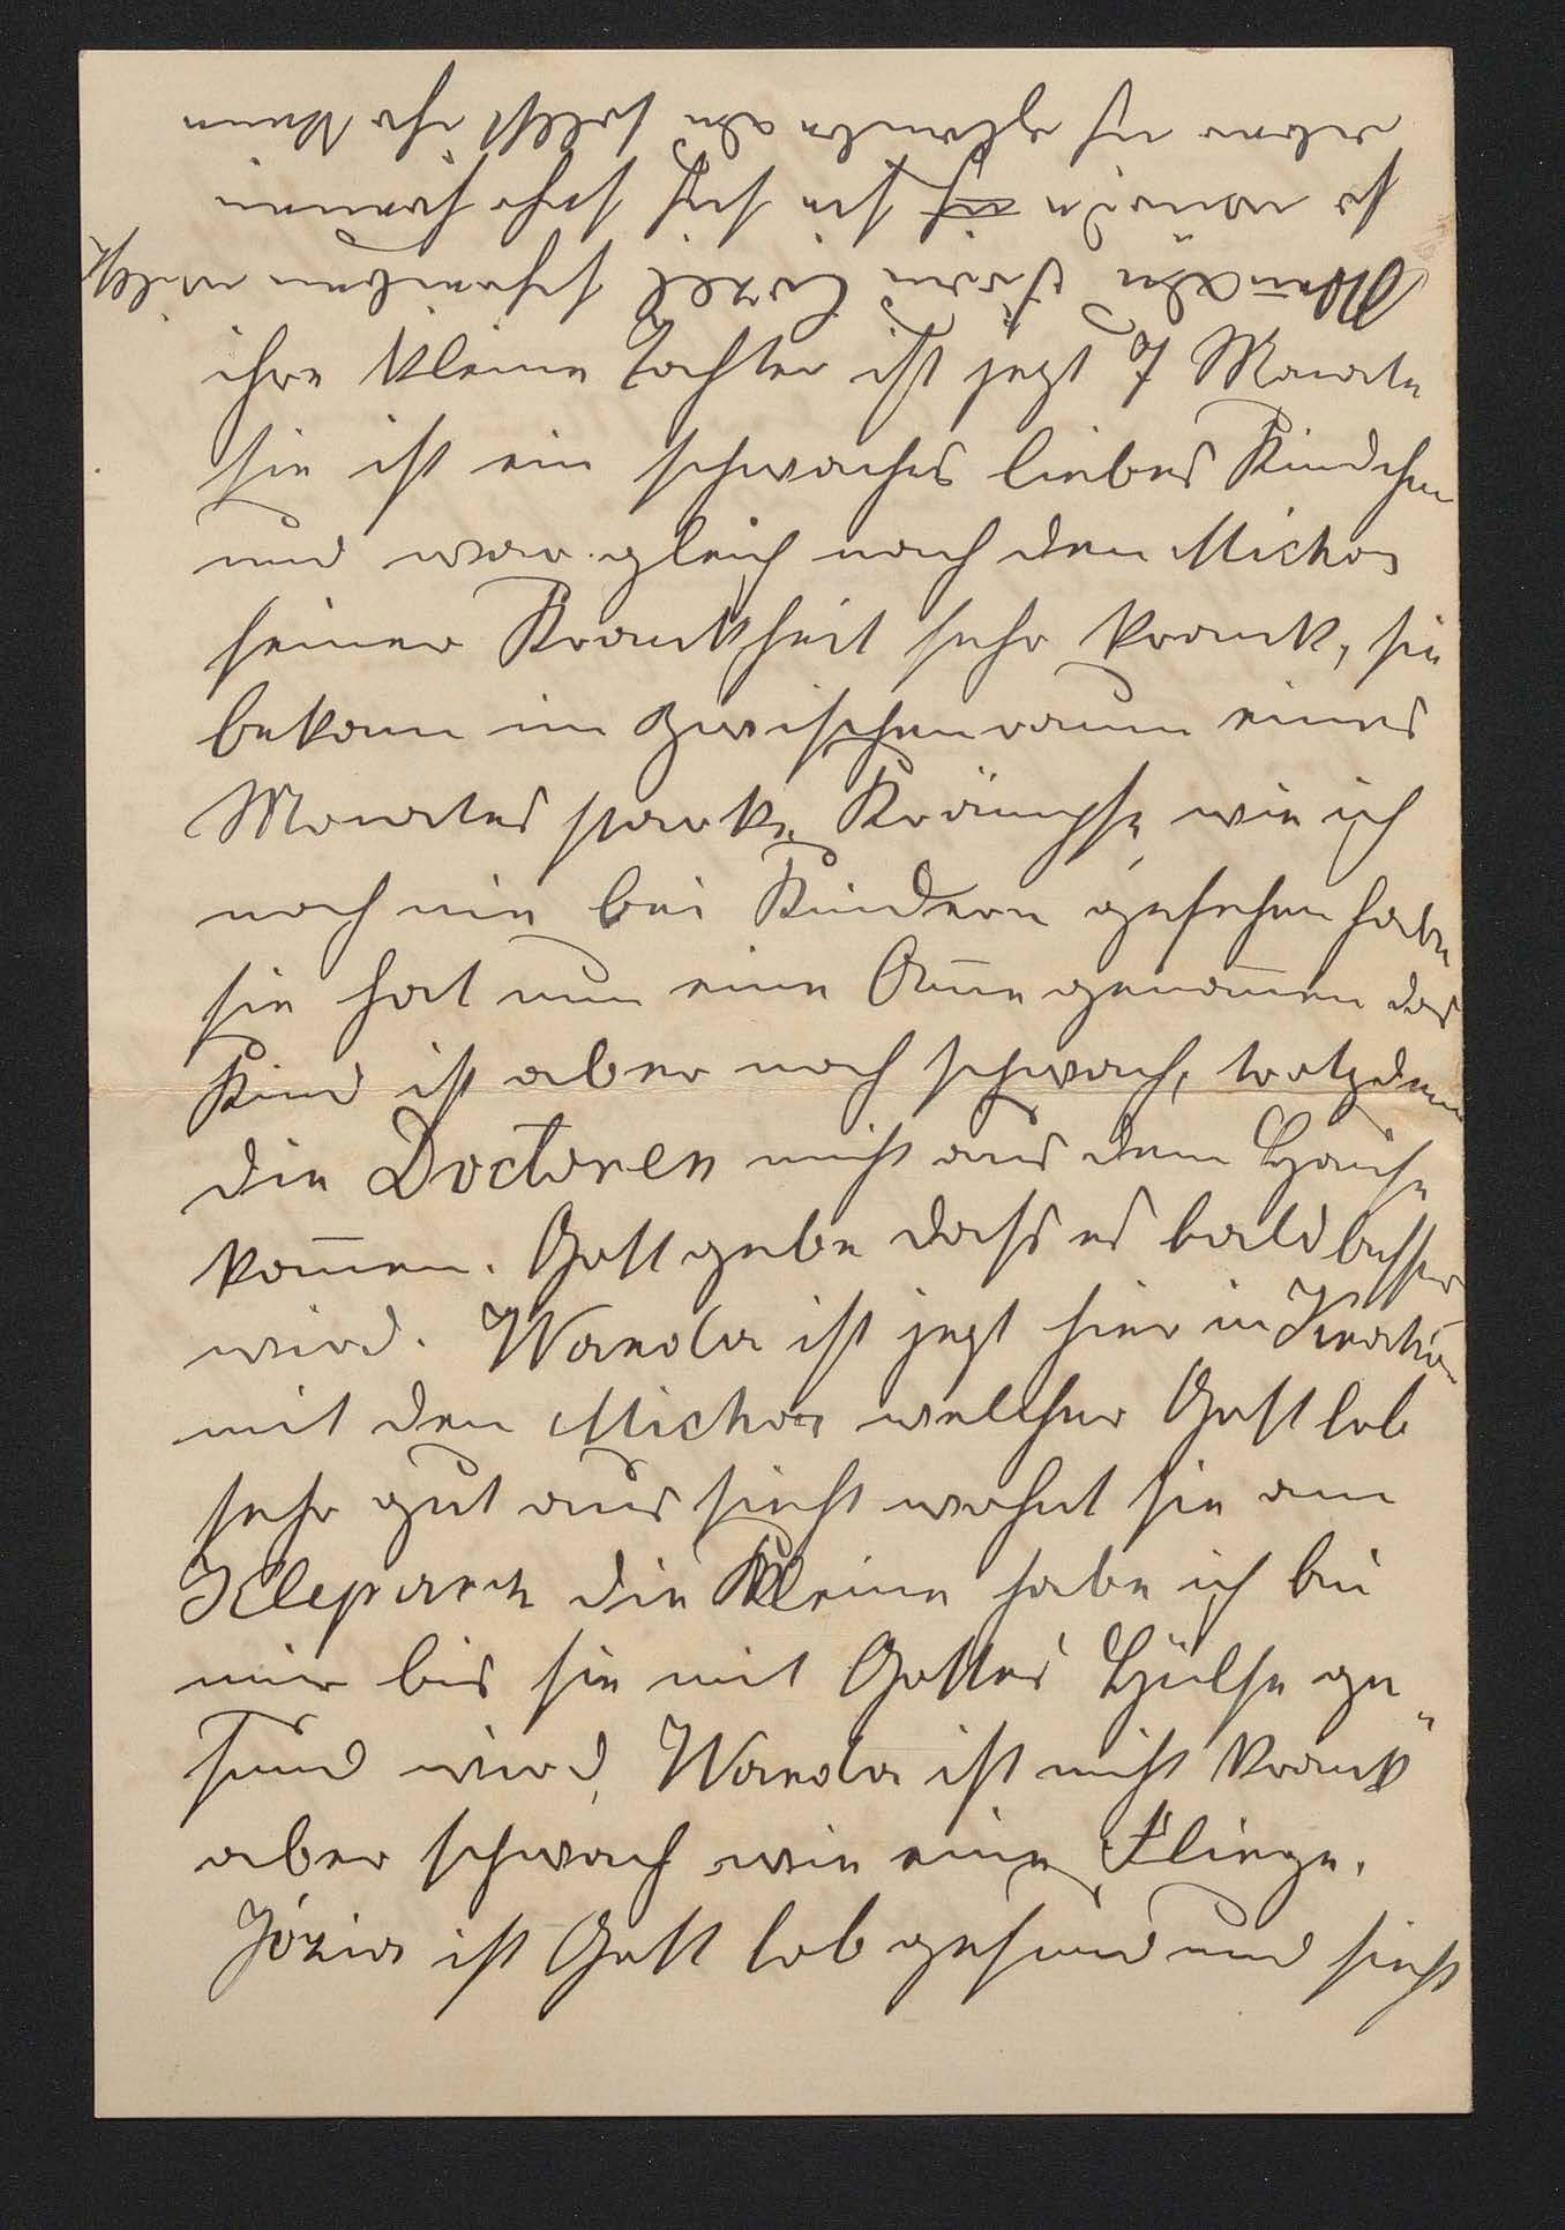 ihre kleine Tochter ist jezt 7 Monate
sie ist ein schwaches liebes Kindchen
und war gleich nach den Michas
seiner Krankheit sehr krank, sie
bekam im Zwischenraum eines
Monates starke Krämpfe wie ich
noch nie bei Kindern gesehen habe
sie hat nun eine Am̄e genom̄en das
Kind ist aber noch schwach, trotzdem
die Doctoren nicht aus dem Hause
kom̄en. Gott gebe dass es bald besser
wird. Wanda ist jezt hier in Krakau
mit den Michas welcher Gott lob
sehr gut aussieht wohnt sie am
Kleparz die Kleine habe ich bei
mir bis sie mit Gottes Hülfe ge"
sund wird, Wanda ist nicht krank
aber schwach wie eine Fliege.
Józia ist Gott lob gesund und sieht
schreiben willst
so würde ich sie sich sehr freuen
aber ich glaube du selbst ihr kaum